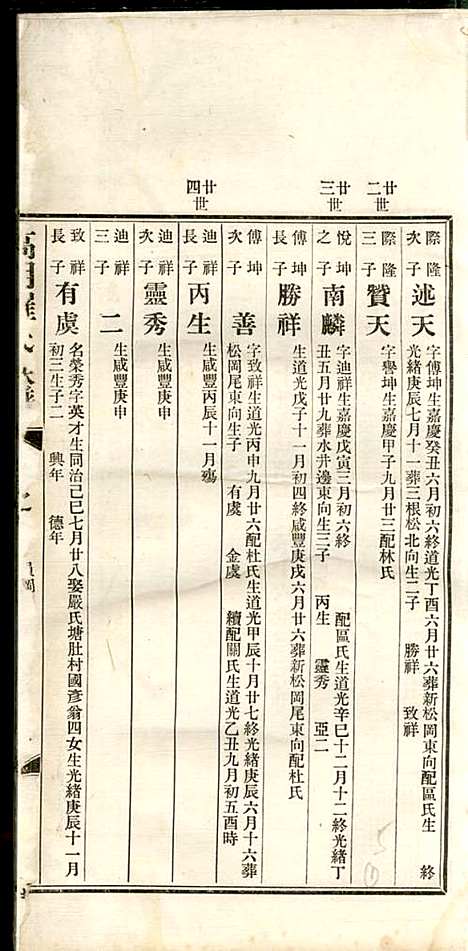 廿二世
廿三世
廿四世
際隆次子 述天
字傅坤生嘉慶癸丑六月初六終道光丁酉六月廿六葬新松岡東向配區氏生 終
光緒庚辰七月十一葬三根松北向生二子 勝祥 致祥
際隆三子 贊天
字譽坤生嘉慶甲子九月廿三配林氏
悅坤之子 南麟
字迪祥生嘉慶戊寅三月初六終 配區氏生道光辛巳十二月十二終光緒丁
丑五月廿九葬水井邊東向生三子 丙生 靈秀 亞二
傅坤長子 勝祥
生道光戊子十一月初四終咸豐庚戌六月廿六葬新松岡尾東向配杜氏
傅坤次子 善
字致祥生道光丙申九月廿六配杜氏生道光甲辰十月廿七終光緒庚辰六月十六葬
松岡尾東向生子 有虞 金虞 續配關氏生道光乙丑九月初五酉時
迪祥長子 丙生
生咸豐丙辰十一月殤
迪祥次子 靈秀
生咸豐庚申
迪祥三子 二
生咸豐庚申
致祥長子 有虞
名榮秀字英才生同治己巳七月廿八娶嚴氏塘肚村國彥翁四女生光緒庚辰十一月
初三生子二 興年 德年